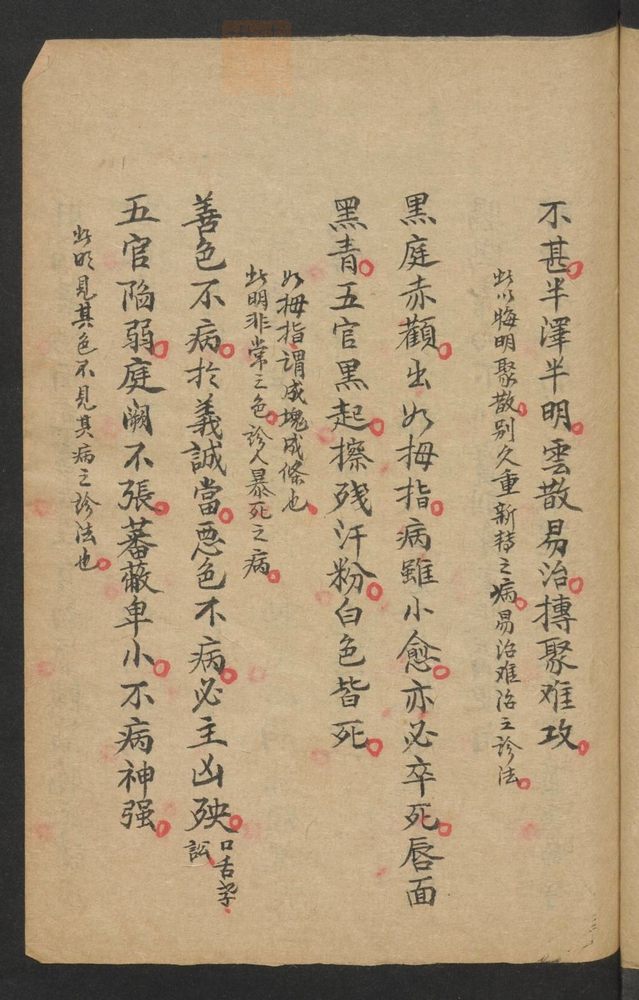 不甚半澤半明雲散易治摶聚难攻
此以晦明聚散别久重新轻之病易治难治之診法
黑庭赤顴出如拇指病雖小愈亦必卒死唇面
黑青五官黑起擦残汗粉白色皆死
如拇指谓成塊成條也
此明非常之色診人暴死之病
善色不病於義誠當恶色不病必主凶殃
口舌
訟
五官陷弱庭闕不張蕃蔽卑小不病神强
此明見其色不見其病之診法也